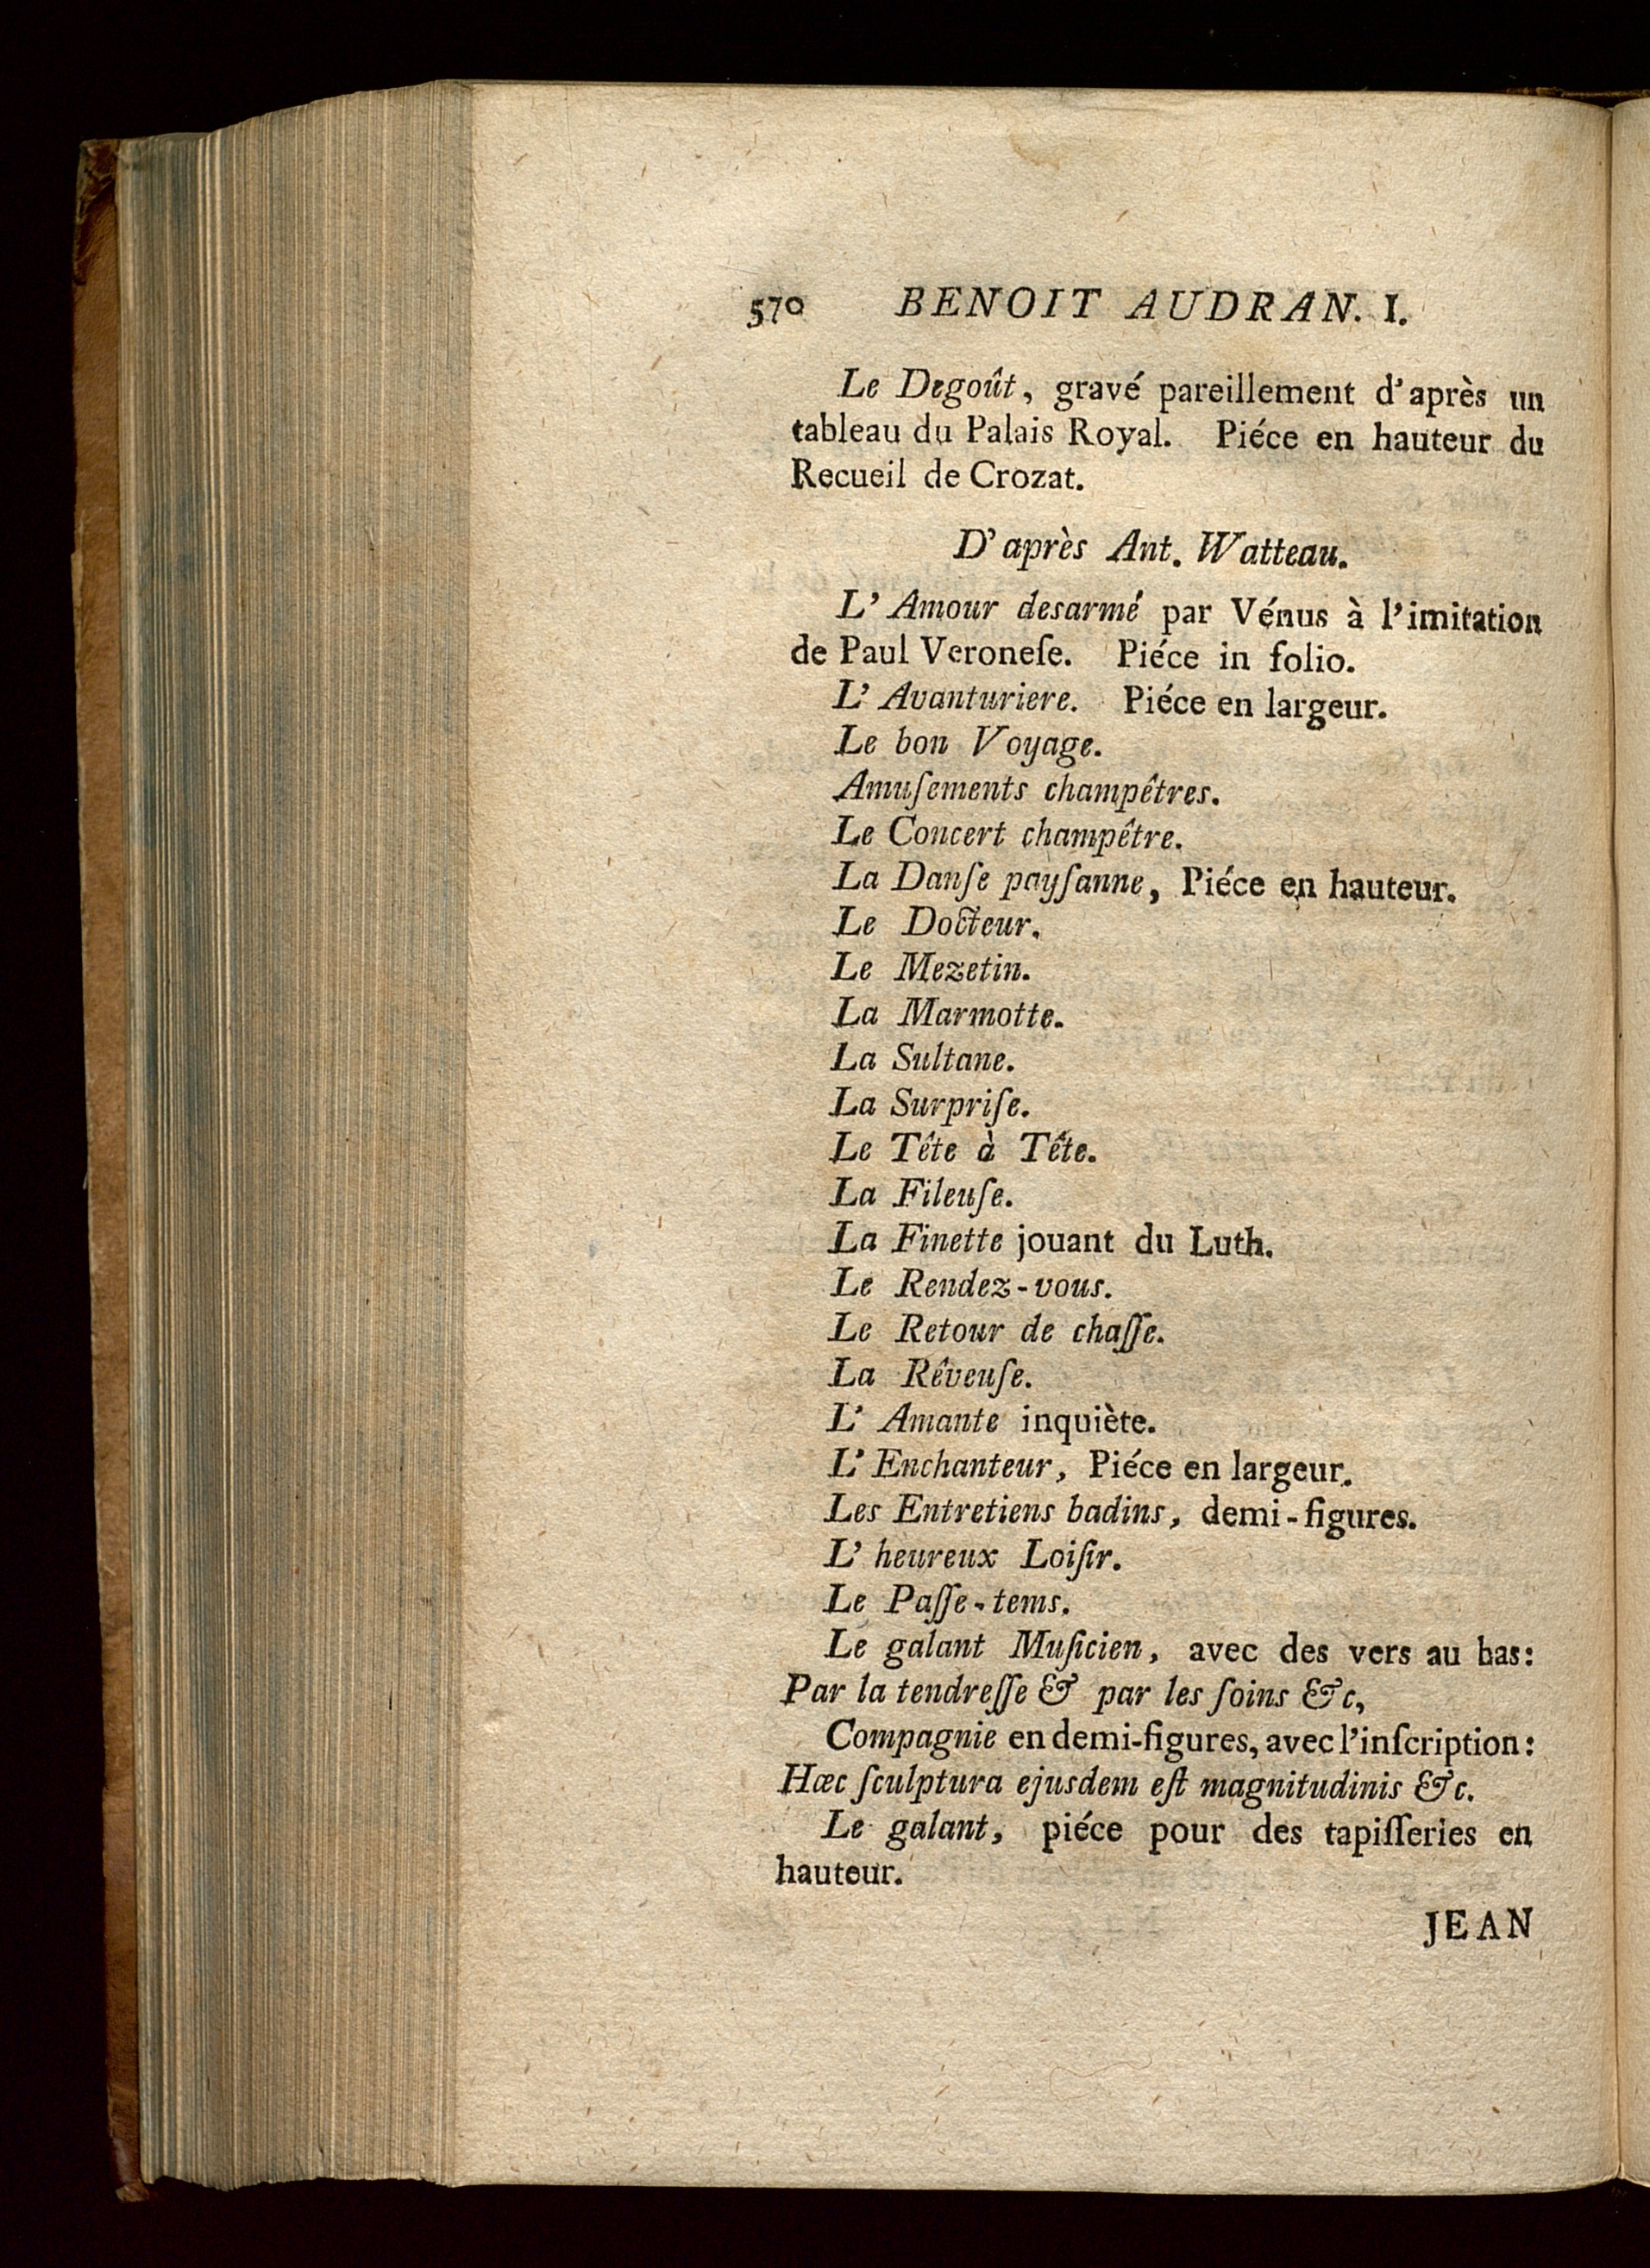 570 BENOIT AUDRAN. I.
Le Degoût, gravé pareillement d'après un
tableau du Palais Royal. Piéce en hauteur du
Recueil de Crozat.
D'après Ant. Watteau.
L'Amour desarmé par Vénus à l'imitation
de Paul Veroneſe. Piéce in folio.
L'Avanturiere. Piéce en largeur.
Le bon Voyage.
Amuſements champêtres.
Le Concert champêtre.
La Danſe payſanne, Piéce en hauteur.
Le Docteur.
Le Mezetin.
La Marmotte.
La Sultane.
La Surpriſe.
Le Tête à Tête.
La Fileuſe.
La Finette jouant du Luth.
Le Rendez-vous.
Le Retour de chaſſe.
La Rêveuſe.
L'Amante inquiète.
L'Enchanteur, Piéce en largeur.
Les Entretiens badins, demi-figures.
L'heureux Loiſir.
Le Paſſe-tems.
Le galant Muſicien, avec des vers au bas:
Par la tendreſſe & par les ſoins &c,
Compagnie en demi-figures, avec l'inſcription:
Hæc ſculptura ejusdem eſt magnitudinis &c.
Le galant, piéce pour des tapiſſeries en
hauteur.
JEAN